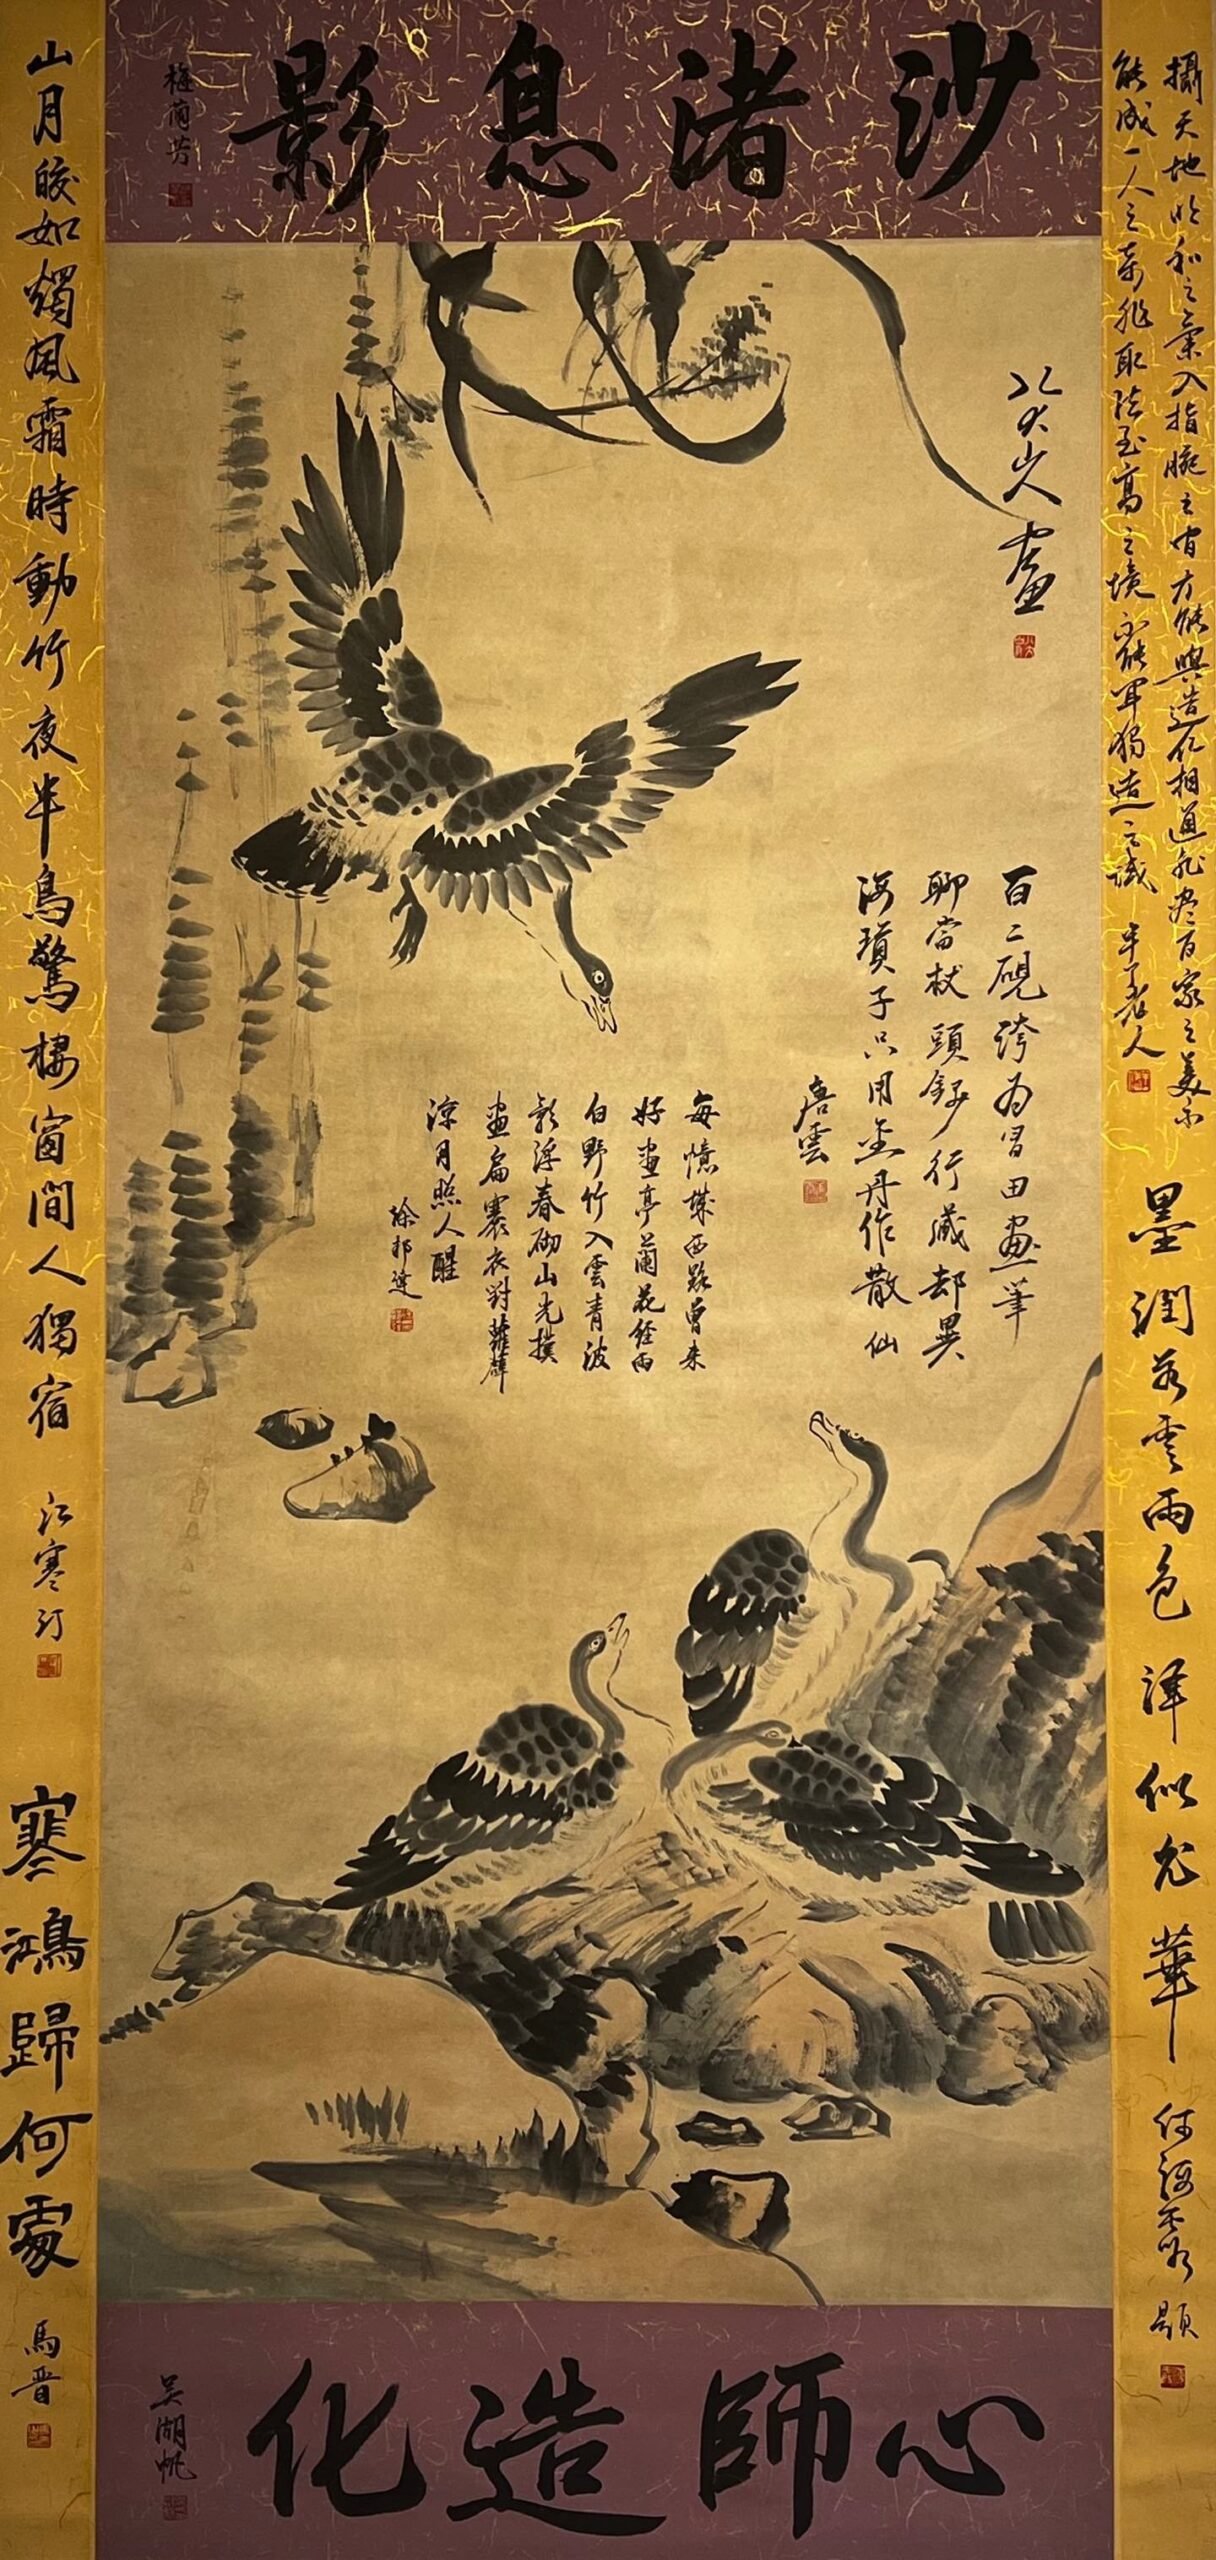 沙渚息影
梅蘭芳
攝天地冲和之氣入指腕之間方能與造化相通非盡百家之美不
能成一人之奇非取法至高之境不能開獨造之域
半丁老人
墨潤若雲雨色澤似光華
何海霞題
八大山人畫
百二硯誇為習田畫筆
聊當杖頭錢行藏却異
海瓊子只用金丹作散仙
唐雲
每憶城西路曾來
好畫亭蘭花經雨
白野竹入雲青波
影浮春砌山光撲
畫扃褰衣對蘿薜
涼月照人醒
徐邦達
山月皎如燭風霜時動竹夜半鳥驚棲窗間人獨宿
江寒汀
寒鴻歸何處
馬晋
心師造化
吳湖帆